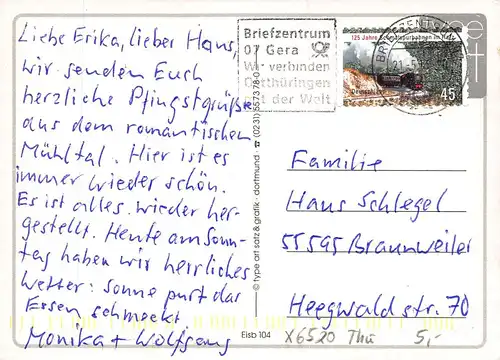 Liebe Erika, lieber Hans,
wir senden Euch
herzliche Pfingstgrüße
aus dem romantischen
Mühltal. Hier ist es
immer wieder schön.
Es ist alles wieder her-
gestellt. Heute am Sonn-
tag haben wir herrliches
Wetter: Sonne purt das
Essen schmeckt
Monika + Wolfgang
Briefzentrum
07 Gera
Wir verbinden
Ostthüringen
mit der Welt
125 Jahre Schmalspurbahnen im Harz
Deutschland
45
BRIEFZENTRUM
© type art satz & grafik · dortmund · ☎ (0231) 557378-0
Familie
Hans Schlegel
55595 Braunweiler
Heegwald str. 70
Eisb 104
X6520 Thü 5,-